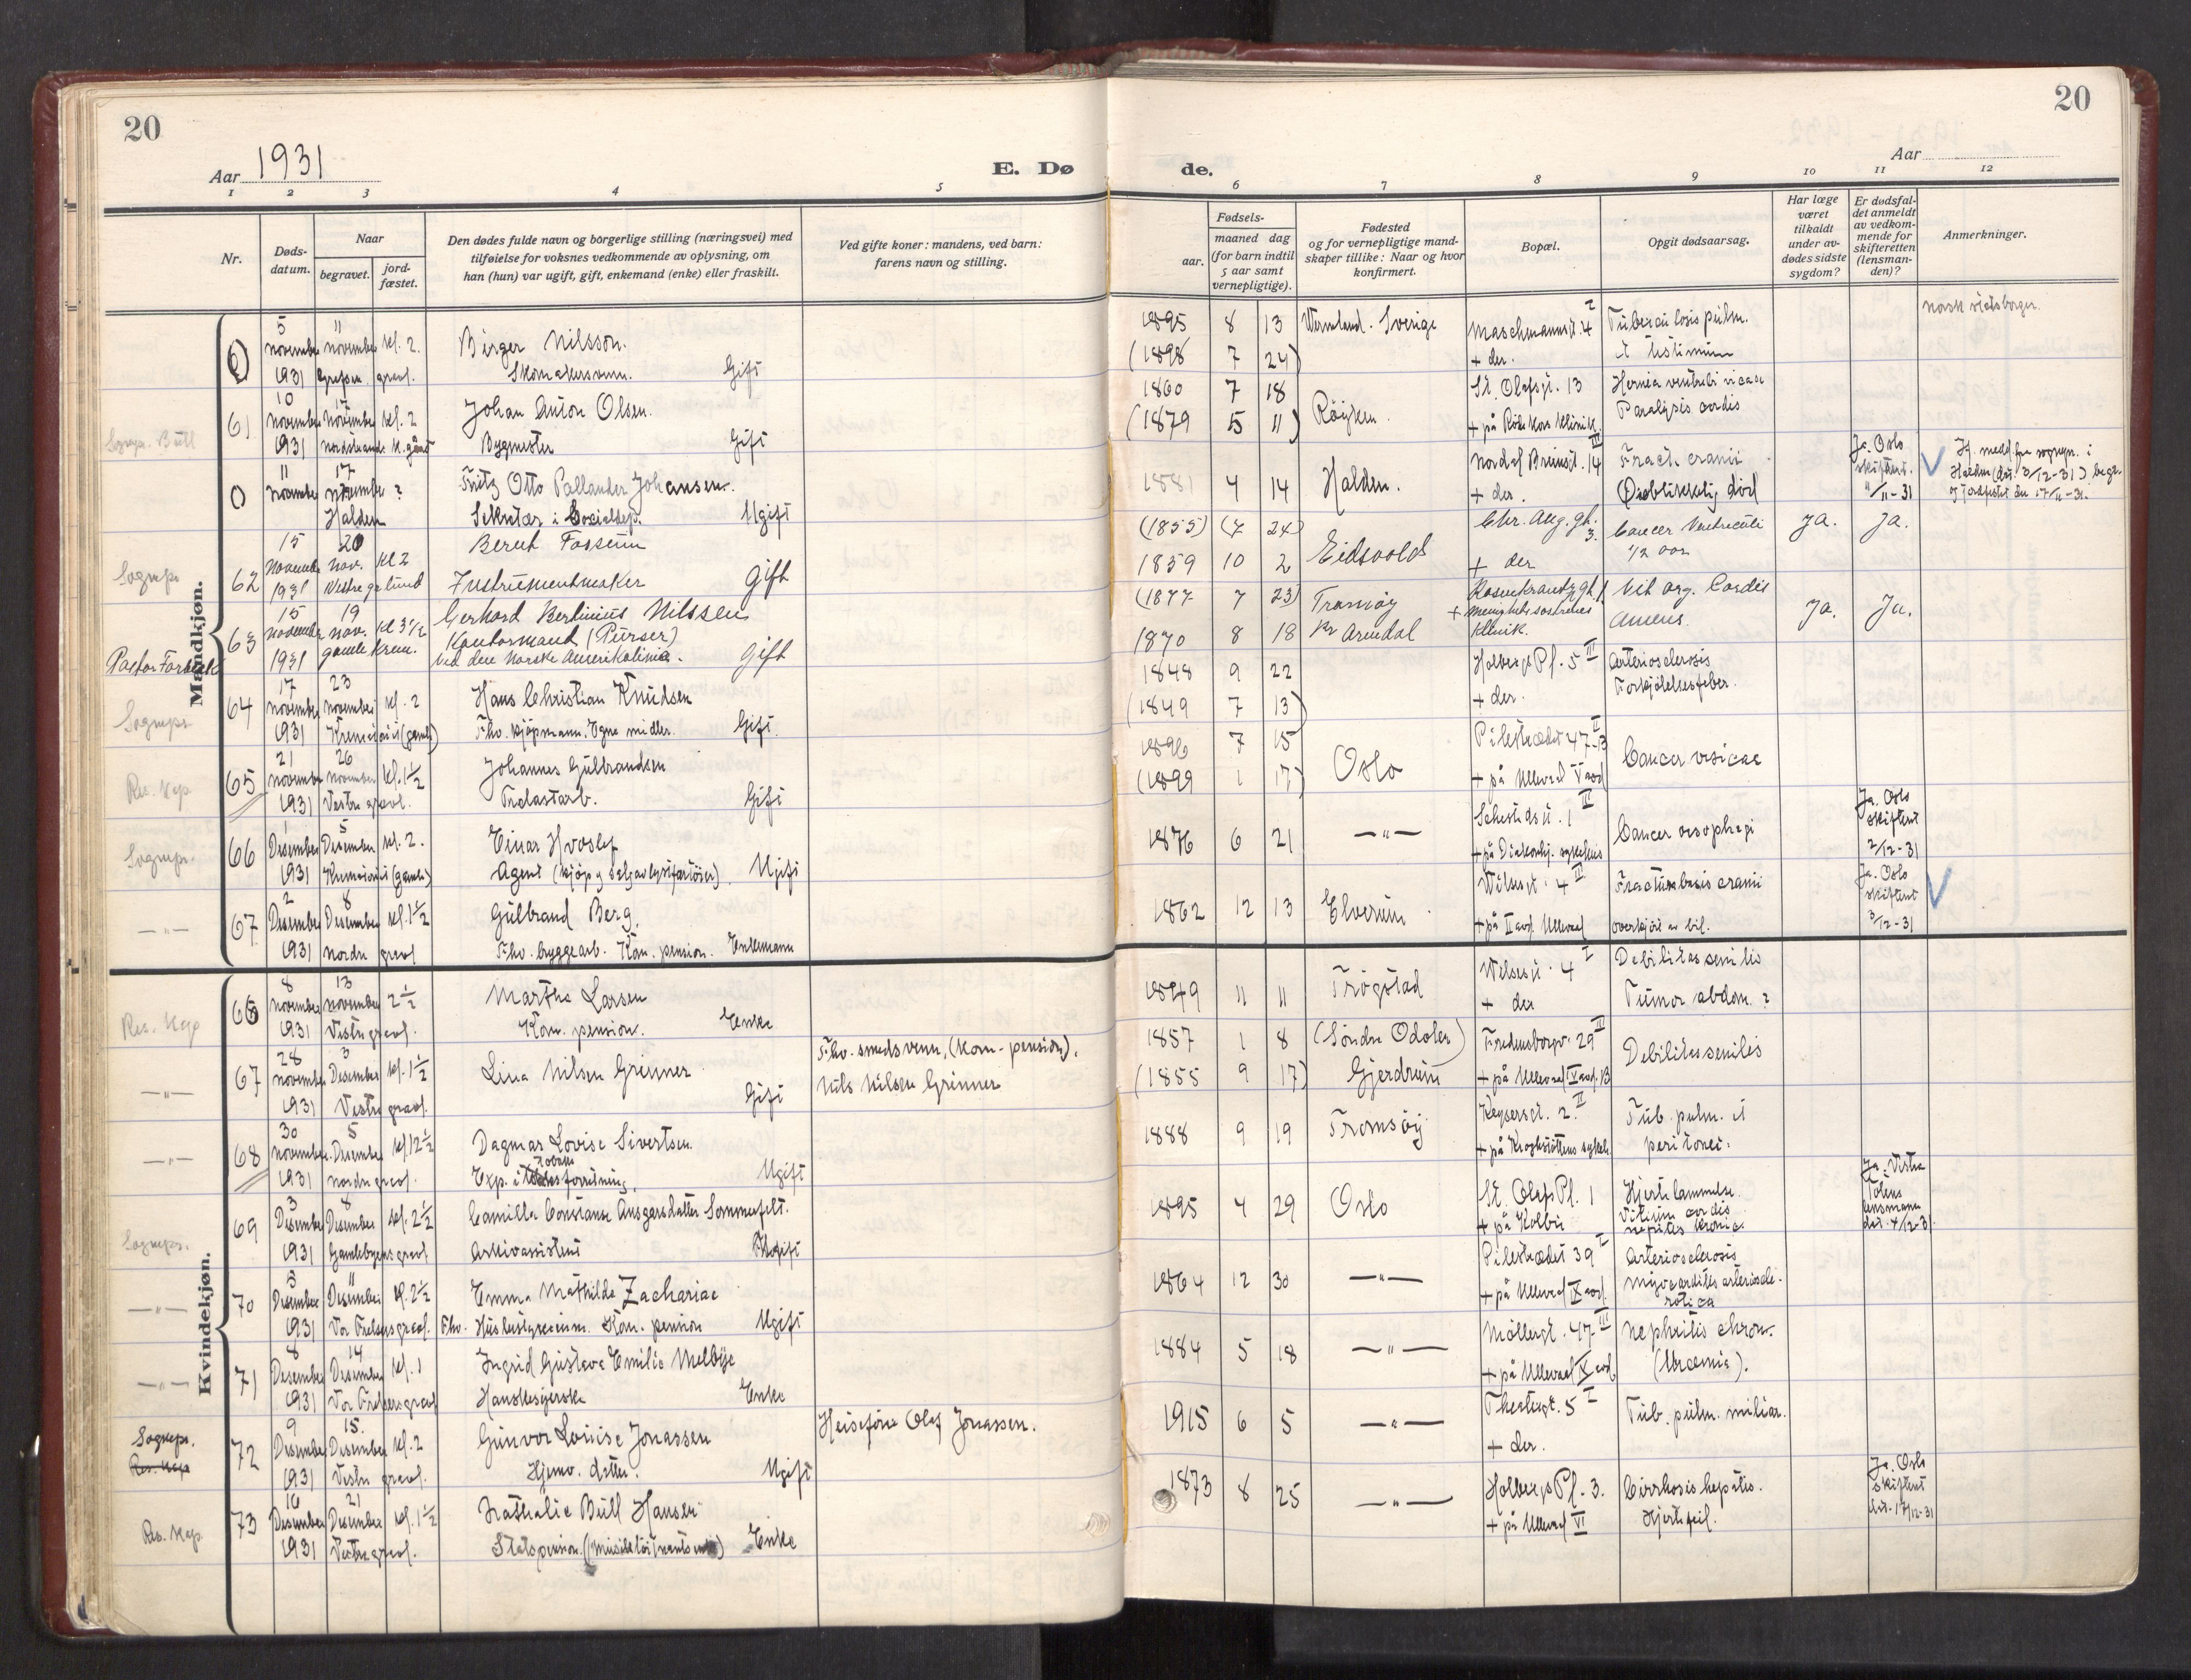 20
20
Aar 1931
E. Dø
de.
Aar
1 2 3 4 5 6 7 8 9 10 11 12
Nr.
Døds-
datum.
Naar
begravet.
jord-
fæstet.
Den dødes fulde navn og borgerlige stilling (næringsvei) med
tilføielse for voksnes vedkommende av oplysning, om
han (hun) var ugift, gift, enkemand (enke) eller fraskilt.
Ved gifte koner: mandens, ved barn:
farens navn og stilling.
Fødsels-
aar.
maaned dag
(for barn indtil
5 aar samt
vernepligtige).
Fødested
og for vernepligtige mand-
skaper tillike: Naar og hvor
konfirmert.
Bopæl.
Opgit dødsaarsag.
Har læge
været
tilkaldt
under av-
dødes sidste
sygdom?
Er dødsfal-
det anmeldt
av vedkom-
mende for
skifteretten
(lensman-
den)?
Anmerkninger.
Mandkjøn.
5 11
november november kl. 2. Birger Nilsson.
1931 gravl. Gift
1895 8 13 Wermland. Sverige
norsk statsborger
(1898 7 24) + der.
Tuberculosis pulm.
10 17
61 november november kl. 2 Johan Anton Olsen.
1931 Bygmester Gift
1860 7 18 St. Olafsgt. 13
(1879 5 11) Røyken.
Paralysis cordis
11 17
0 november november ? Fritz Otto Pallander Johansen.
Halden Sekretær i Socialdep. Ugift
1881 4 14 Halden. + der.
Fract. cranii
Øieblikkelig død
Ja. Oslo
skifteret.
15 20
Sognepr. 62 Novembr nov. kl 2 Bernt Fossum
1931 Vestre gr. lund Instrumentmaker Gift
(1855) (7 24) Chr. Aug. gt. 3. Cancer Ventriculi ja. ja.
1859 10 2 Eidsvold + der 1/2 aar
15 19
63 november nov. kl 3 1/2 Gerhard Bertinius Nilssen
Kontormand (Purser)
1931 gamle krem. ved den norske Amerikalinie. Gift
(1877 7 23) Tromøy Rosenkrantzgt. Vit. org. Cordis
1870 8 18 Kr Arendal Klinik. Ja. Ja.
17 23
Sognepr. 64 november november kl. 2 Hans Christian Knudsen
1931 Fhv. kjøpmann. Egne midler. Gift.
1848 9 22 Holbergs Pl. 5 III Arteriosclerosis
(1849 7 13) + der. Forkjølelsesfeber.
21 26
Res. Kap 65 november november kl. 1 1/2 Johannes Gulbrandsen
1931 Vestre gravl. Trelastarb. Gift
1896 7 15 Pilestrædet 47 II
(1899 1 17) Oslo + på Ullevaal V avd Cancer vesicae
1 5
Sognepr. 66 Desember Desember kl. 2. Einar Hvoslef
1931 Agent Ugift
1876 6 21 —"— Cancer oesophagi
Ja. Oslo
skifteret
2/12-31
2 8
—"— 67 Desember Desember kl. 1 1/2 Gulbrand Berg.
1931 nordre gravl Fhv. bryggearb. Kom. pension. Enkemann
1862 12 13 Elverum. + på II avd. Ullevaal overkjørt av bil.
Ja. Oslo
skifteret
3/12-31
Kvindekjøn.
8 13
Res. Kap 66 november november 2 1/2 Martha Larsen
1931 Vestre gravl. Kom. pension. Enke
1849 11 11 Trøgstad + der
Debilitas senilis
Tumor abdom. ?
28 3
—"— 67 november Desember kl. 1 1/2 Lina Nilsen Grinner
1931 Vestre gravl. Gift
Fhv. smedsvenn, (kom-pension).
Nils Nilsen Grinner
1857 1 8 (Søndre Odalen)
(1855 9 17) Gjerdrum Debilitas senilis
30 5
—"— 68 november Desember kl. 12 1/2 Dagmar Lovise Sivertsen.
1931 nordre gravl. Ugift
1888 9 19 Tromsøy Keysersgt. 2. II Tub. pulm. et
peritonei.
3 8
Sognepr. 69 Desember Desember kl. 2 1/2 Camilla Constanse Ansgarsdatter Sommerfelt.
1931 Gamlebyens gravl Arkivassistent
1895 4 29 Oslo St. Olafs Pl. 1 Hjertelammelse.
+ på Kolbu Vitium cordis
Ja. Vestre
Totens
lensmann
dat. 4/12-31
5 11
—"— 70 Desember Desember kl. 2 1/2 Emma Mathilde Zachariae
1931 Vor Frelsers gravl. Fhv. Husbestyrerinne. Kom. pension Ugift
1864 12 30 —"— Pilestrædet 39 I Arteriosclerosis
+ på Ullevaal IX avd. myocarditis arterioscle-
rotica
8 14
—"— 71 Desember Desember kl. 1 Ingrid Gustava Emilie Melbye
1931 Vor Frelsers gravl Hanskesyerske Enke
1884 5 18 —"— Møllergt. 47 III Nephritis chron.
+ på Ullevaal IX avd. (Uræmia).
9 15.
Sognepr. 72 Desember Desember kl. 2 Gunvor Louise Jonassen
Res. Kap 1931 Vestre gravl. Hjemv. datter. Ugift
Heisefører Olaf Jonassen.
1915 6 5 —"— Theatergt. 5 I Tub. pulm. miliar.
+ der.
16 21
Res. Kap. 73 Desember Desember kl. 1 1/2 Nathalie Bull Hansen
1931 Vestre gravl. Statspension. Enke
1873 8 25 —"— Holbergs Pl. 3. Cirrhosis hepatis.
+ på Ullevaal VI Hjertefeil.
Ja. Oslo
skifteret
dat. 17/12-31